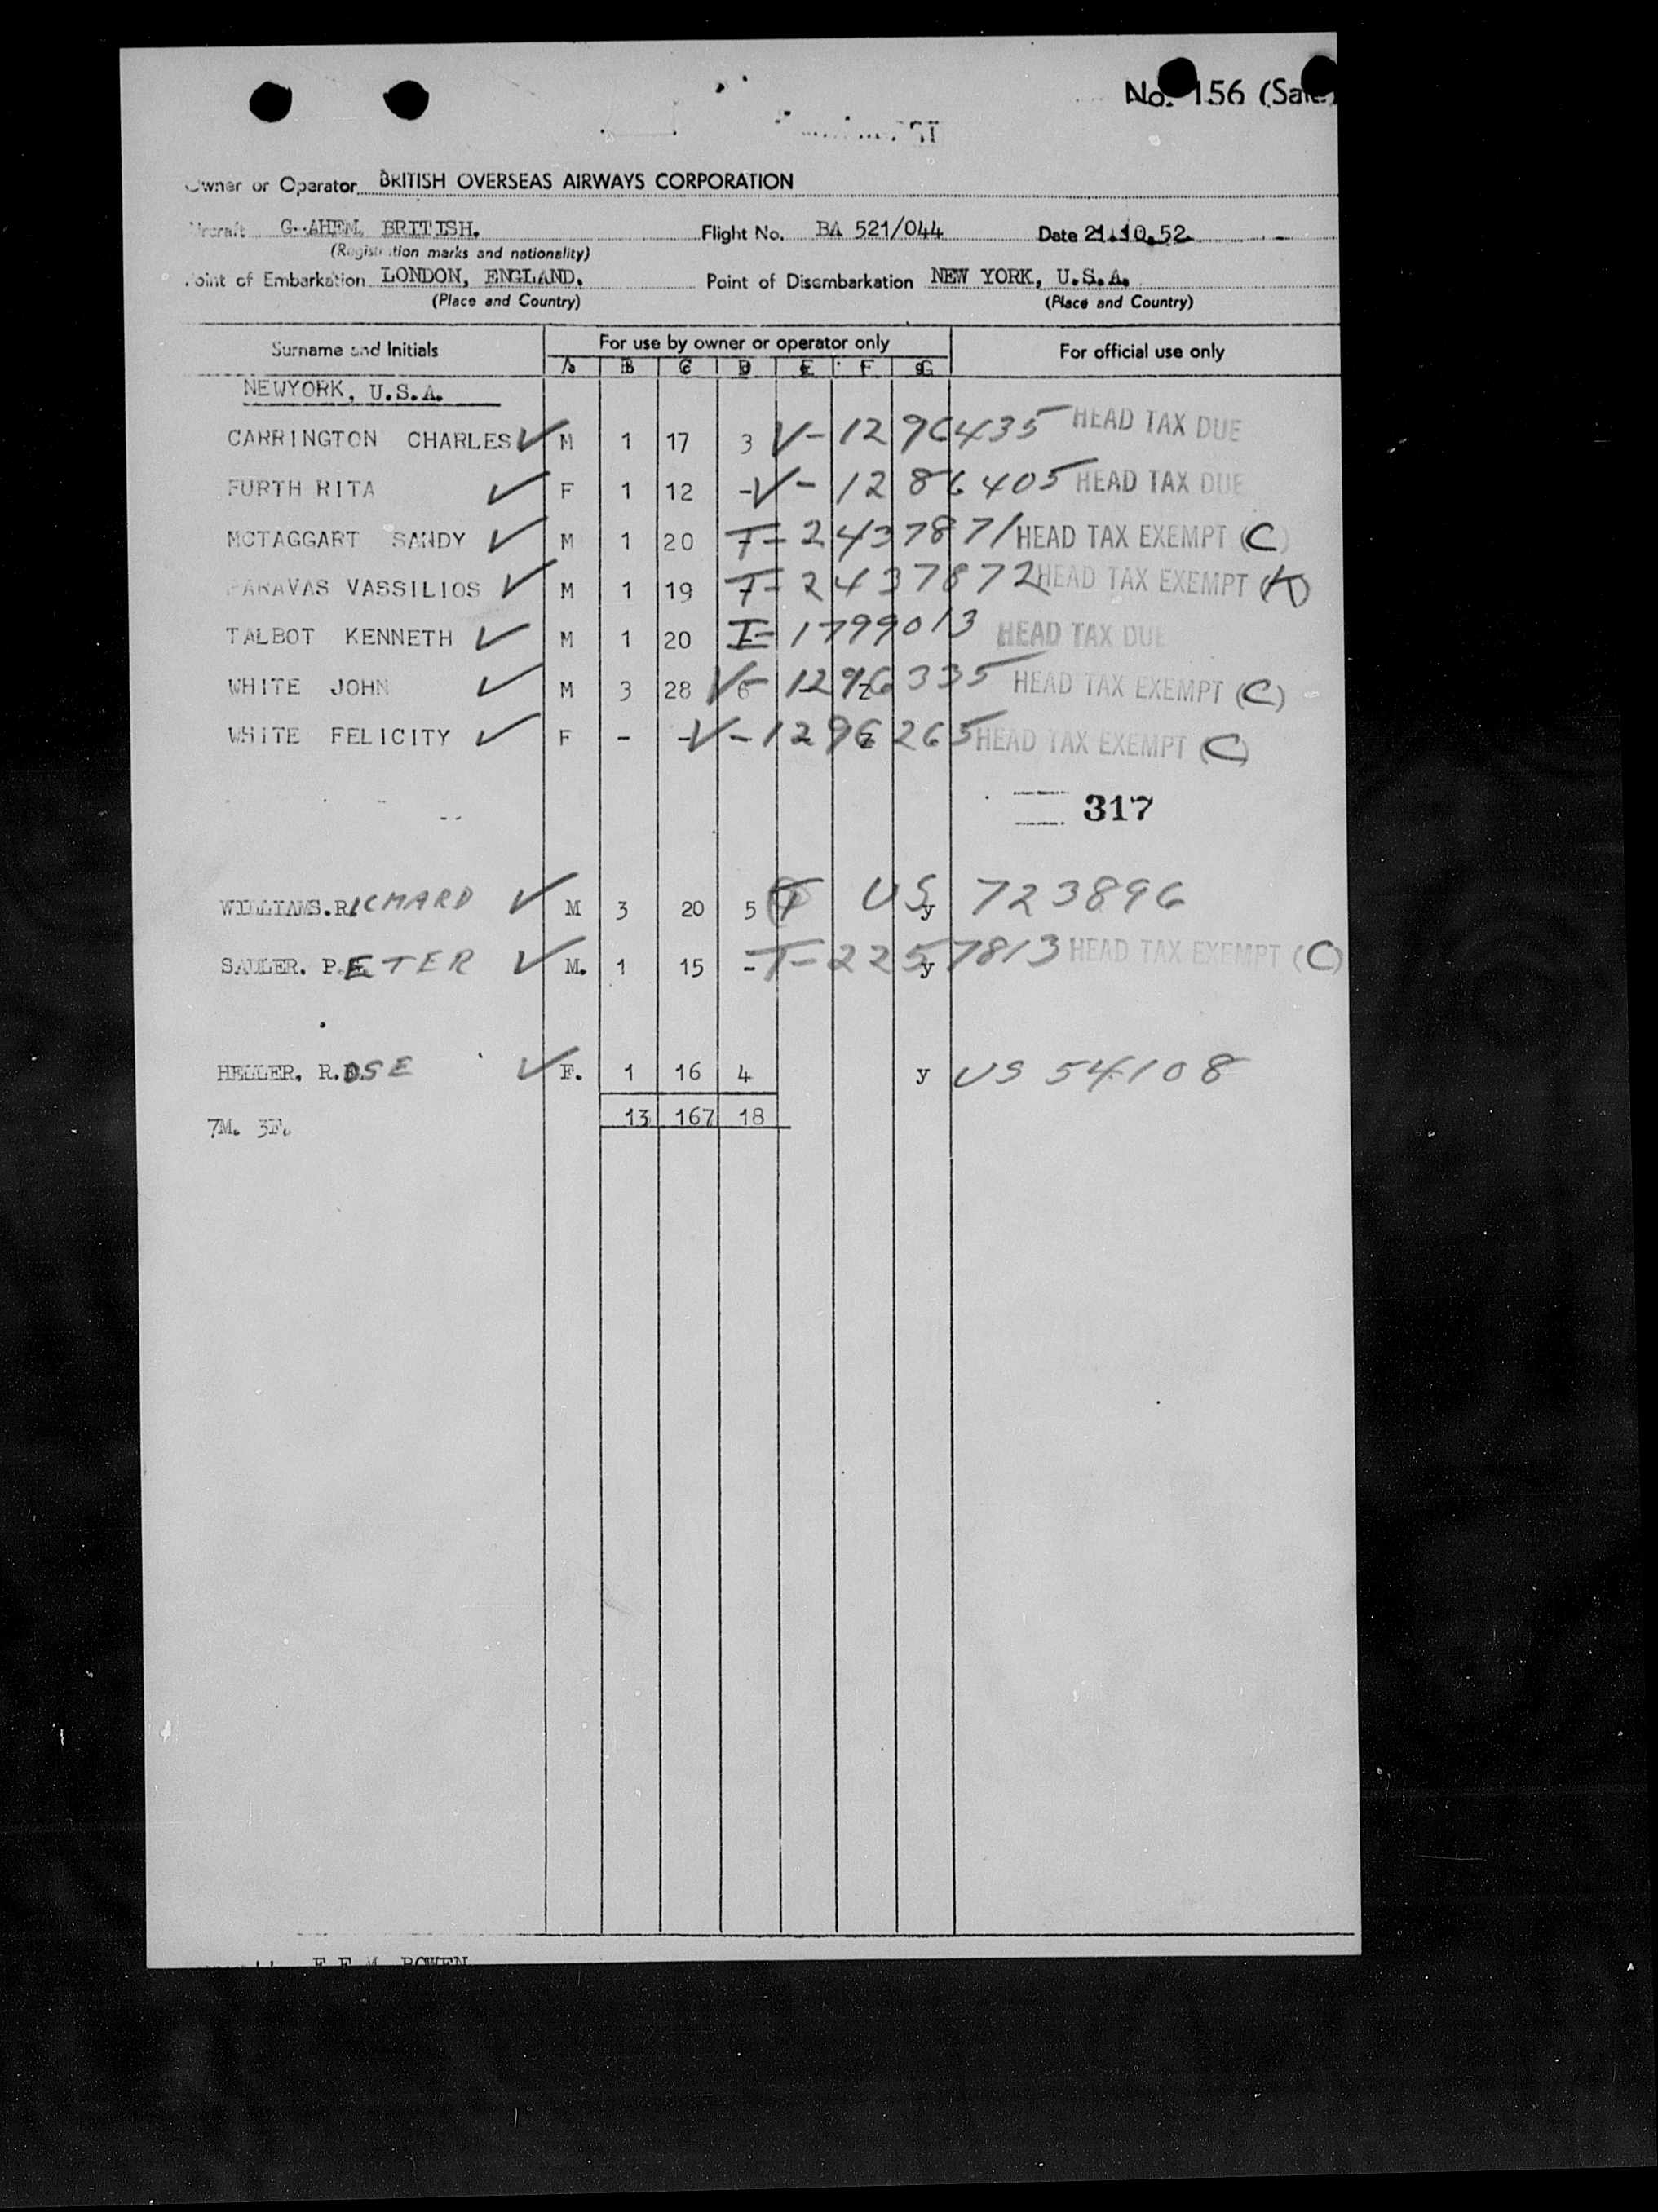 No. 156
Owner or Operator BRITISH OVERSEAS AIRWAYS CORPORATION
Aircraft G-AHEM, BRITISH. Flight No. BA 521/044 Date 21.10.52
(Registration marks and nationality)
Point of Embarkation LONDON, ENGLAND. Point of Disembarkation NEW YORK, U.S.A.
(Place and Country) (Place and Country)
Surname and Initials For use by owner or operator only For official use only
A B C D E F G
NEWYORK, U.S.A.
CARRINGTON CHARLES ✓ M 1 17 3 V-1296435 HEAD TAX DUE
FURTH RITA ✓ F 1 12 - V-1286405 HEAD TAX DUE
MCTAGGART SANDY ✓ M 1 20 T-2437871 HEAD TAX EXEMPT (C)
PARAVAS VASSILIOS ✓ M 1 19 T-2437872 HEAD TAX EXEMPT
TALBOT KENNETH ✓ M 1 20 I-1799013 HEAD TAX DUE
WHITE JOHN ✓ M 3 28 6 V-1296335 HEAD TAX EXEMPT (C)
WHITE FELICITY ✓ F - - V-1296265 HEAD TAX EXEMPT (C)
317
WILLIAMS.RICHARD ✓ M 3 20 5 T US y 723896
SAULER. P.ETER ✓ M. 1 15 - T-2257813 y HEAD TAX EXEMPT (C)
HELLER, R.OSE ✓ F. 1 16 4 y US 54108
13 167 18
7M. 3F.
BOWEN